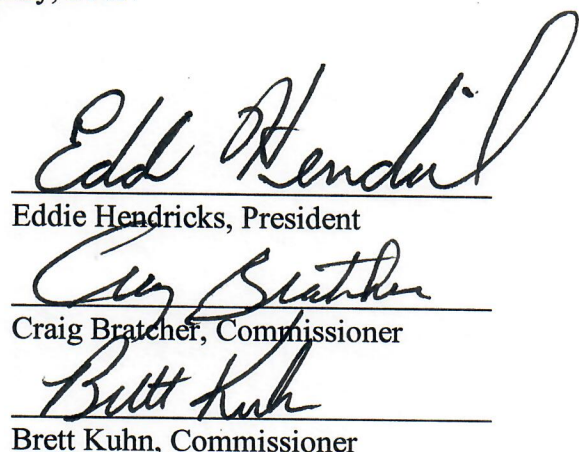 Edd Hendricks
Eddie Hendricks, President
Craig Bratcher
Craig Bratcher, Commissioner
Brett Kuhn
Brett Kuhn, Commissioner